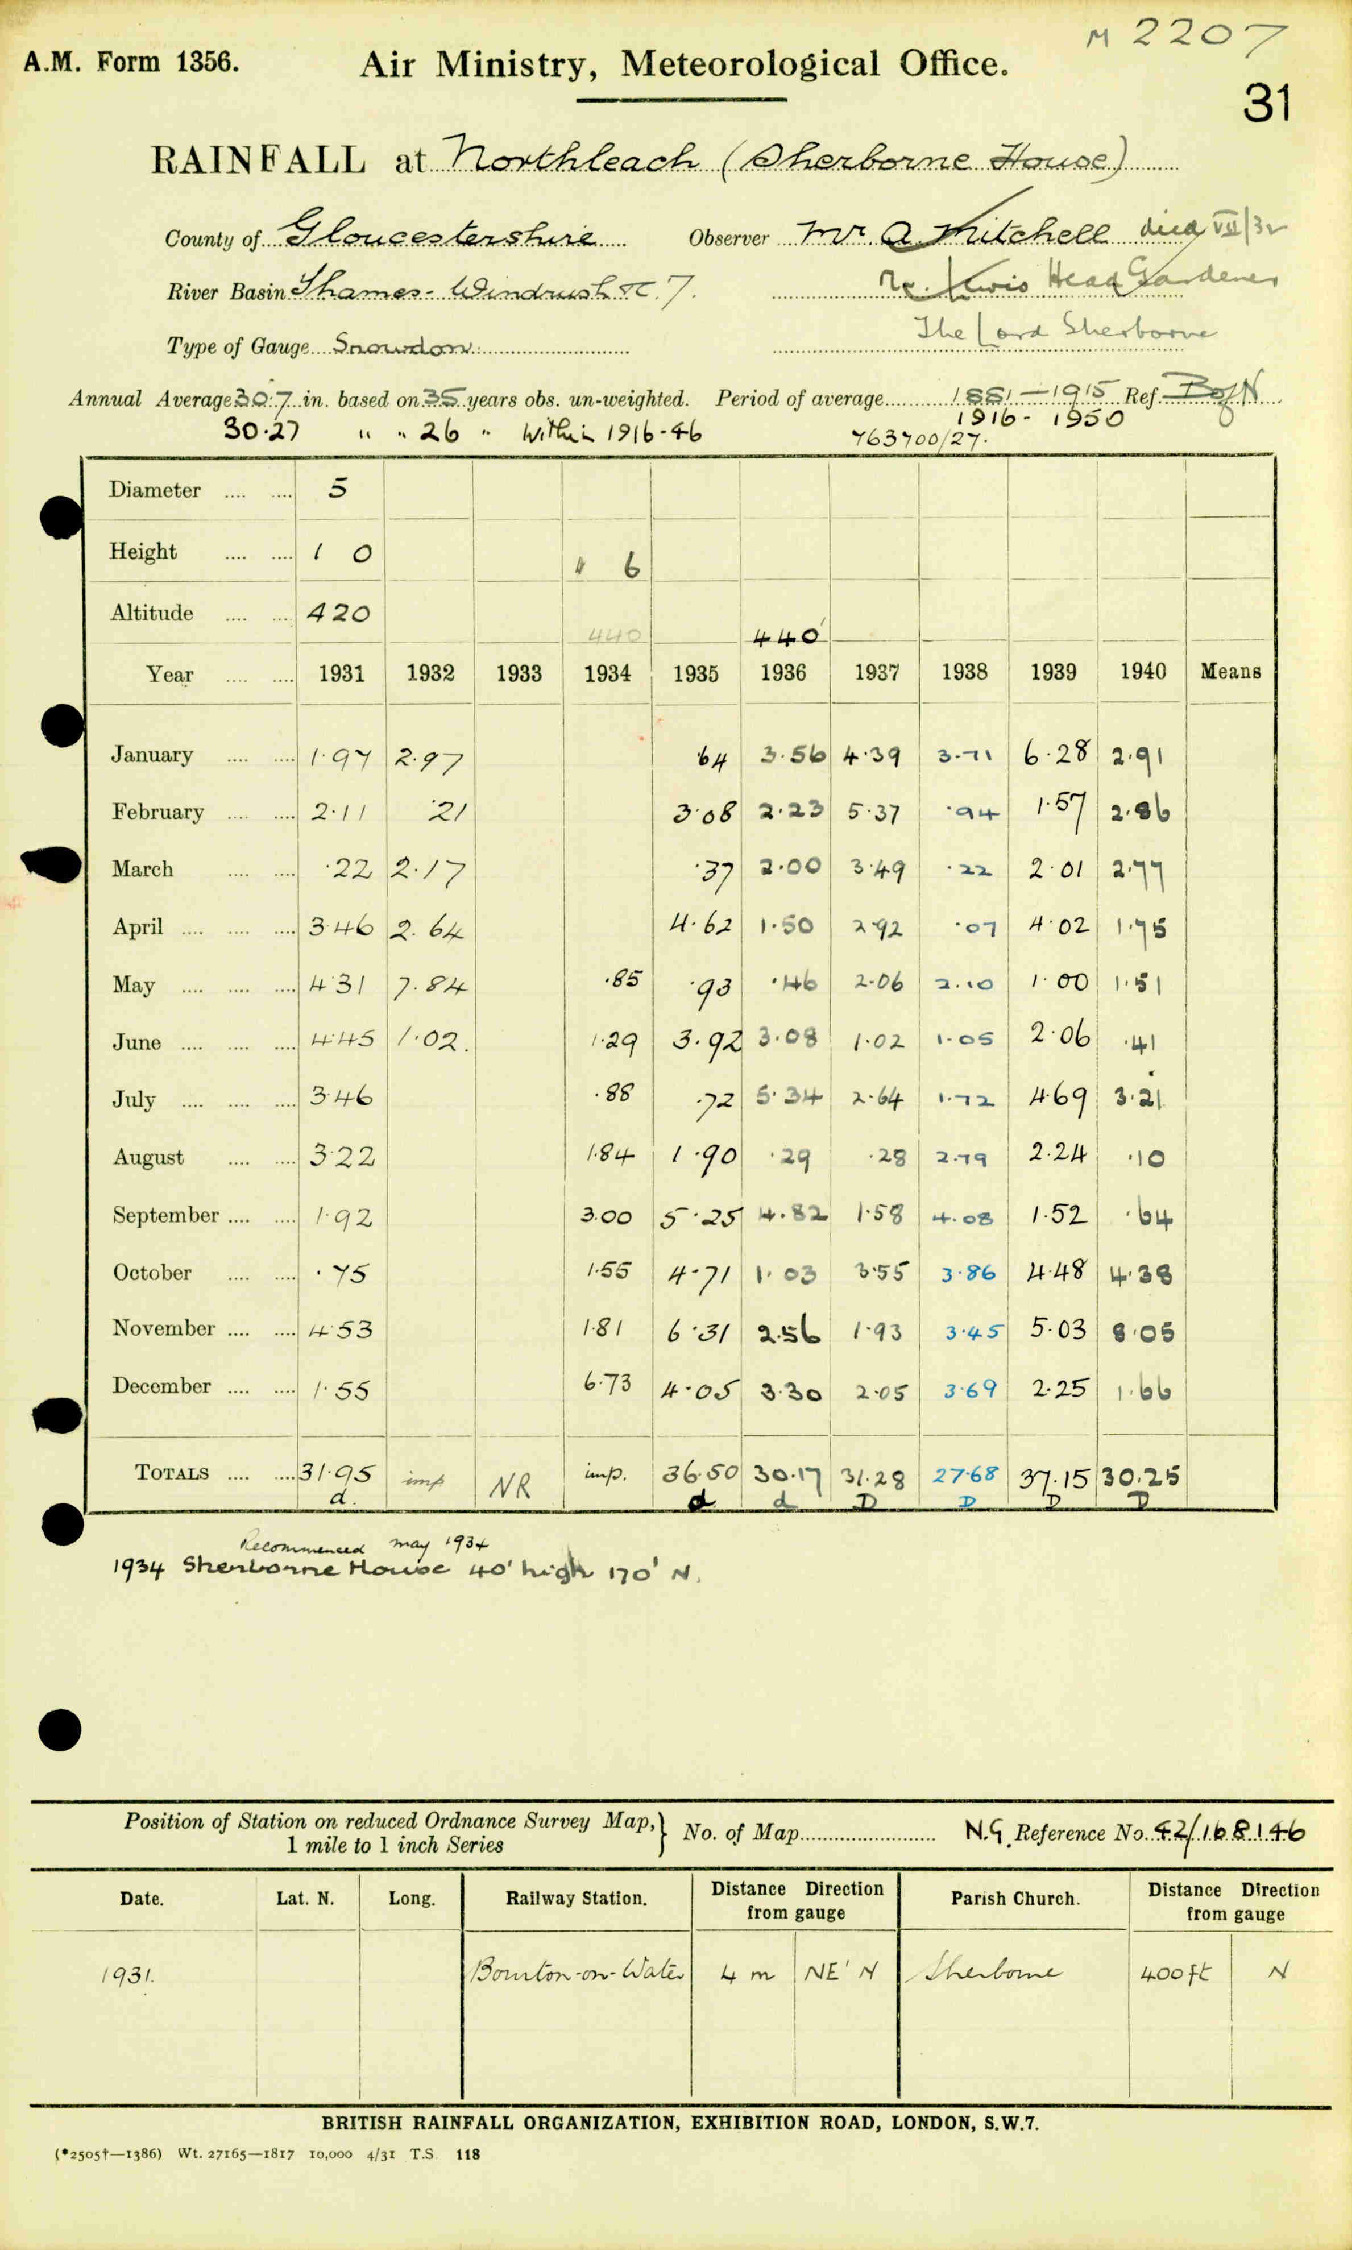 M 2207
A.M. Form 1356. Air Ministry, Meteorological Office.
31
RAINFALL at Northleach (Sherborne House)
County of Gloucestershire Observer Mr. A. Mitchell died VII/32
River Basin Thames - Windrush &c. 7. Mr. Lewis Head Gardener
Type of Gauge Snowdon The Lord Sherborne
Annual Average 30.7 in. based on 35 years obs. un-weighted. Period of average 1881-1915 Ref.
30.27 " " 26 " Within 1916-46 1916 - 1950
763700/27.
Diameter 5
Height 1 0 " 6
Altitude 420 440 440'
Year 1931 1932 1933 1934 1935 1936 1937 1938 1939 1940 Means
January 1.97 2.97 .64 3.56 4.39 3.71 6.28 2.91
February 2.11 .21 3.08 2.23 5.37 .94 1.57 2.86
March .22 2.17 .37 2.00 3.49 .22 2.01 2.77
April 3.46 2.64 4.62 1.50 2.92 .07 4.02 1.75
May 4.31 7.84 .85 .93 .46 2.06 2.10 1.00 1.51
June 4.45 1.02. 1.29 3.92 3.08 1.02 1.05 2.06 .41
July 3.46 .88 .72 5.34 2.64 1.72 4.69 3.21
August 3.22 1.84 1.90 .29 .28 2.79 2.24 .10
September 1.92 3.00 5.25 4.82 1.58 4.08 1.52 .64
October .75 1.55 4.71 1.03 3.55 3.86 4.48 4.38
November 4.53 1.81 6.31 2.56 1.93 3.45 5.03 8.05
December 1.55 6.73 4.05 3.30 2.05 3.69 2.25 1.66
TOTALS 31.95 imp NR imp. 36.50 30.17 31.28 27.68 37.15 30.25
d. d d D D D D
Recommenced may 1934
1934 Sherborne House 40' high 170' N.
Position of Station on reduced Ordnance Survey Map, 1 mile to 1 inch Series } No. of Map N.G. Reference No. 42/168146
Date. Lat. N. Long. Railway Station. Distance Direction from gauge Parish Church. Distance Direction from gauge
1931. Bourton-on-Water 4 m NE'N Sherborne 400 ft N
BRITISH RAINFALL ORGANIZATION, EXHIBITION ROAD, LONDON, S.W.7.
(*2505†—1386) Wt. 27165—1817 10,000 4/31 T.S. 118